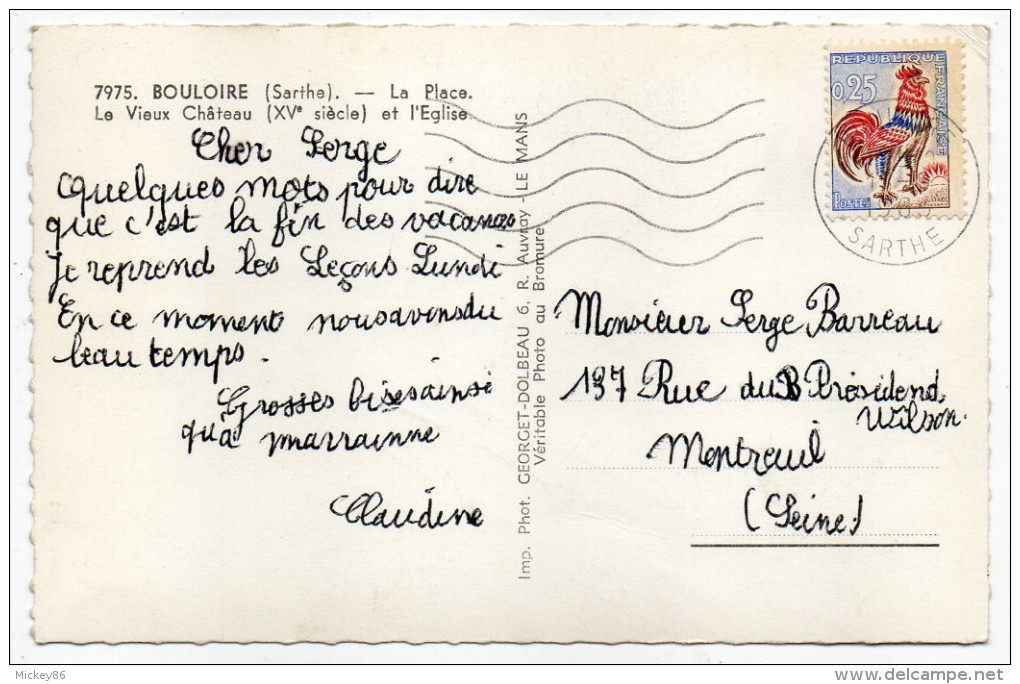 7975. BOULOIRE (Sarthe). — La Place.
Le Vieux Château (XVe siècle) et l'Eglise.
Cher Serge
Quelques mots pour dire
que c'est la fin des vacances
Je reprend les Leçons Lundi
En ce moment nous avons du
beau temps.
Grosses bises ainsi
qu'à marrainne
Claudine
Imp. Phot. GEORGET-DOLBEAU 6, R. Auvray - LE MANS
Véritable Photo au Bromure
REPUBLIQUE FRANÇAISE
0,25
POSTES
SARTHE
Monsieur Serge Barreau
137 Rue du Présidend
Wilson.
Montreuil
(Seine)
Mickey86
delcampe.net